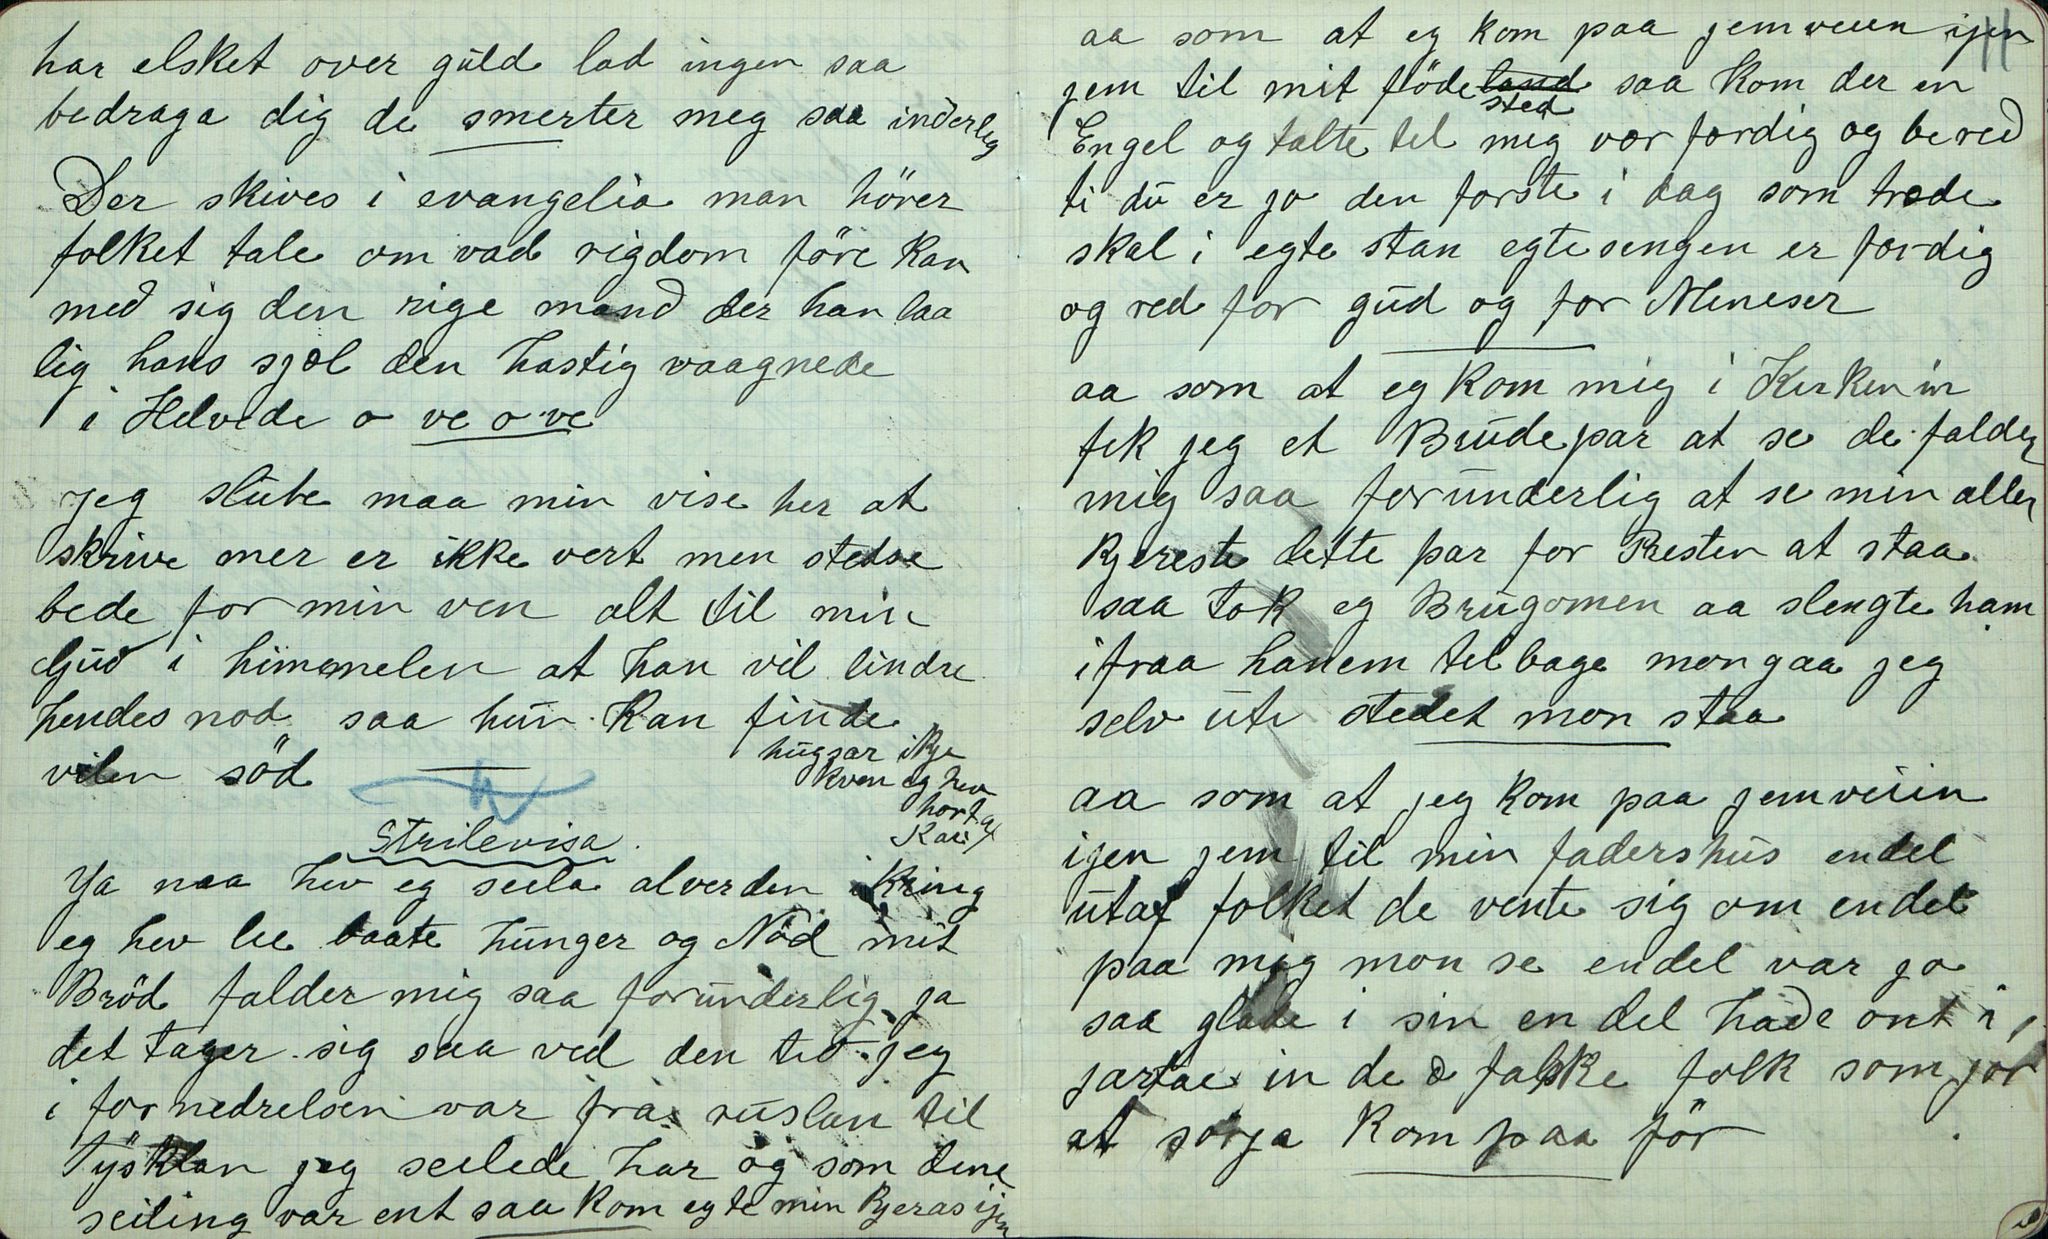 har elsket over guld lad ingen saa
bedraga dig de smerter meg saa inderlig
Der skives i evangelia man hörer
folket tale om vad rigdom före kan
med sig den rige mand der han laa
lig hans sjæl den hastig vaagnede
i Helvede o ve o ve
jeg slute maa min vise her at
skrive mer er ikke vert men stedse
bede for min ven alt til min
Gud i himmelen at han vil lindre
hendes nod saa hun kan finde
vilen söd
hugsar ikje
kven eg hev
hort a
Kari
Strilevisa.
Ya naa hev eg seila alverden ikring
eg hev lee baate hunger og Nöd mit
Bröd falder mig saa forunderlig ja
det tager sig saa ved den tid jeg
i fornedrelsen var fra ruslan til
Tysklan jeg seilede har og som dene
seiling var ent saa kom eg te min Kjeras ijen
11
aa som at eg kom paa jemveien ijen
jem til mit föde land saa kom der en
sted
Engel og talte til mig vær færdig og bered
ti du er jo den forste i dag som træde
skal i egte stan egtesengen er færdig
og red for gud og for Meneser
aa som at eg kom mig i Kirken in
fik jeg et Brudepar at se de falder
mig saa forunderlig at se min aller
kjereste dette par for Resten at staa
saa tok eg Brugomen aa slengte ham
ifraa hanem tilbage mon gaa jeg
selv uti stedet mon staa
aa som at jeg kom paa jemveiin
ijen jem til min faders hus endel
utaf folket de vente sig om endel
paa mig mon se endel var jo
saa glade i sin en del hade ont i
jartae in de falske folk som jor
at sörja kom paa för